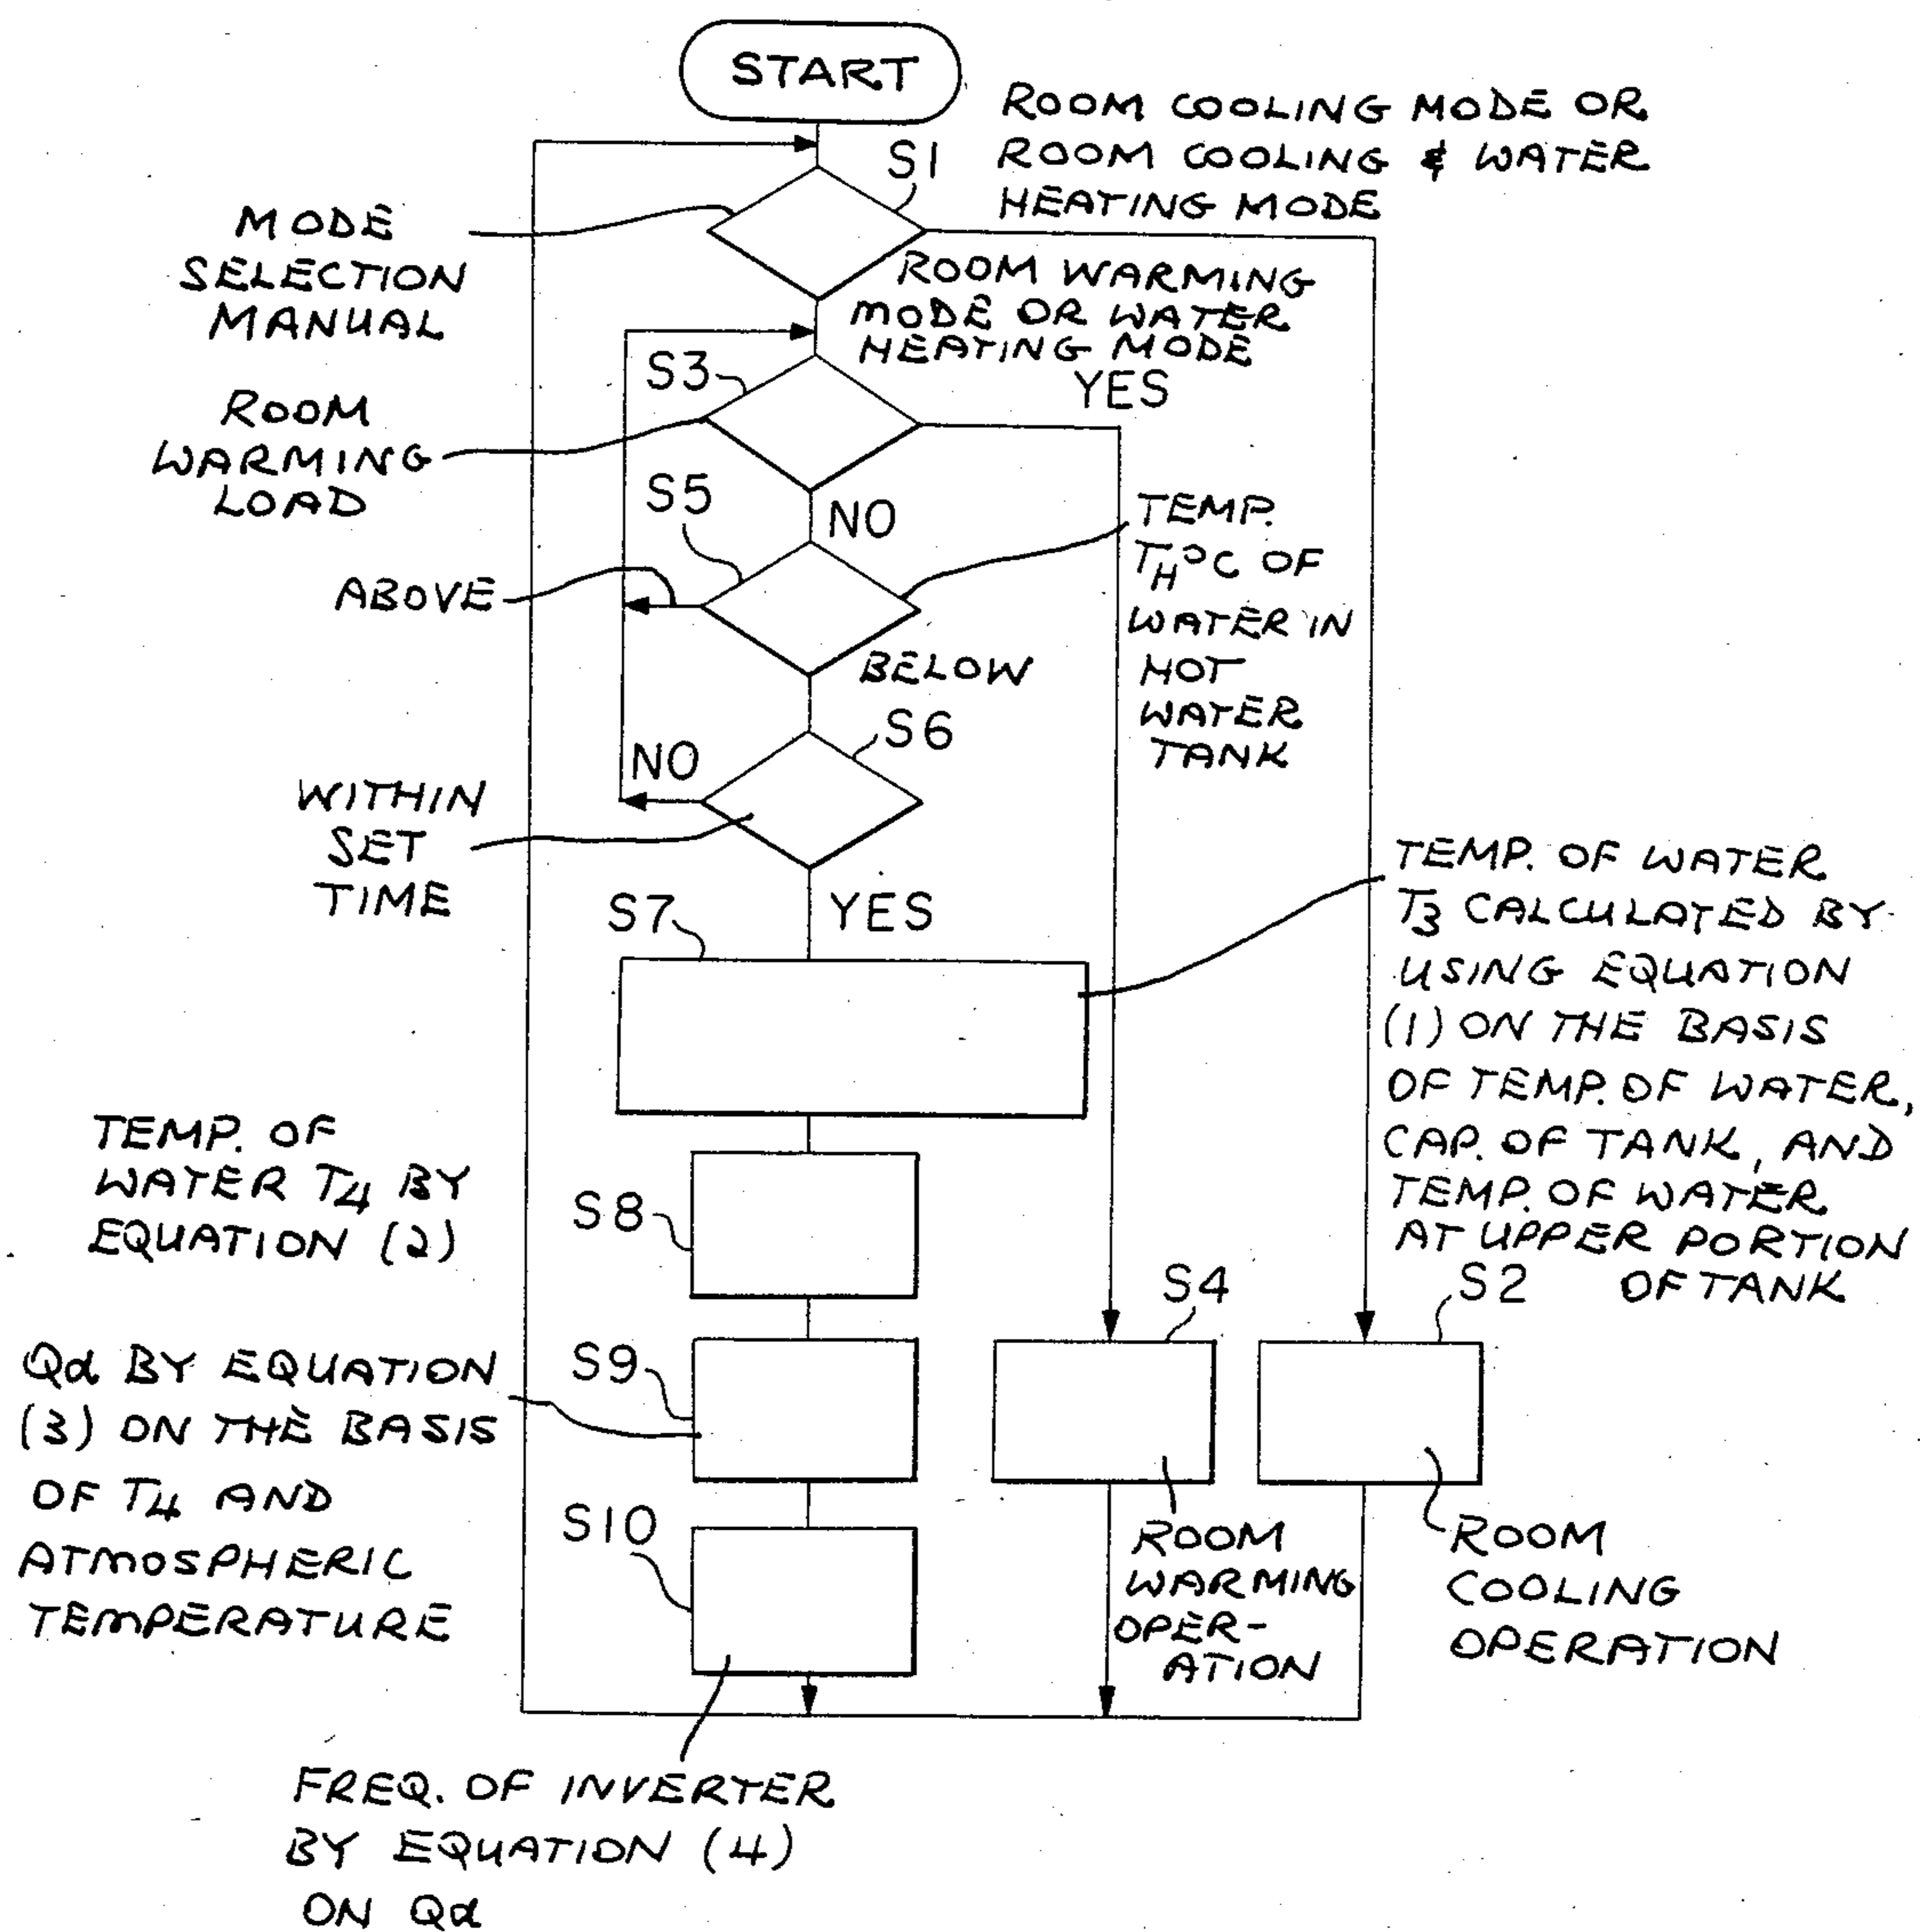 START
ROOM COOLING MODE OR
ROOM COOLING & WATER
HEATING MODE
S1
MODE
SELECTION
MANUAL
ROOM WARMING
MODE OR WATER
HEATING MODE
YES
S3
ROOM
WARMING
LOAD
S5
NO
TEMP.
TH°C OF
WATER IN
HOT
WATER
TANK
ABOVE
BELOW
S6
NO
WITHIN
SET
TIME
YES
S7
TEMP. OF WATER
T3 CALCULATED BY
USING EQUATION
(1) ON THE BASIS
OF TEMP. OF WATER,
CAP. OF TANK, AND
TEMP. OF WATER
AT UPPER PORTION
OF TANK
TEMP. OF
WATER T4 BY
EQUATION (2)
S8
S4
S2
Qα BY EQUATION
(3) ON THE BASIS
OF T4 AND
ATMOSPHERIC
TEMPERATURE
S9
S10
ROOM
WARMING
OPER-
ATION
ROOM
COOLING
OPERATION
FREQ. OF INVERTER
BY EQUATION (4)
ON Qα